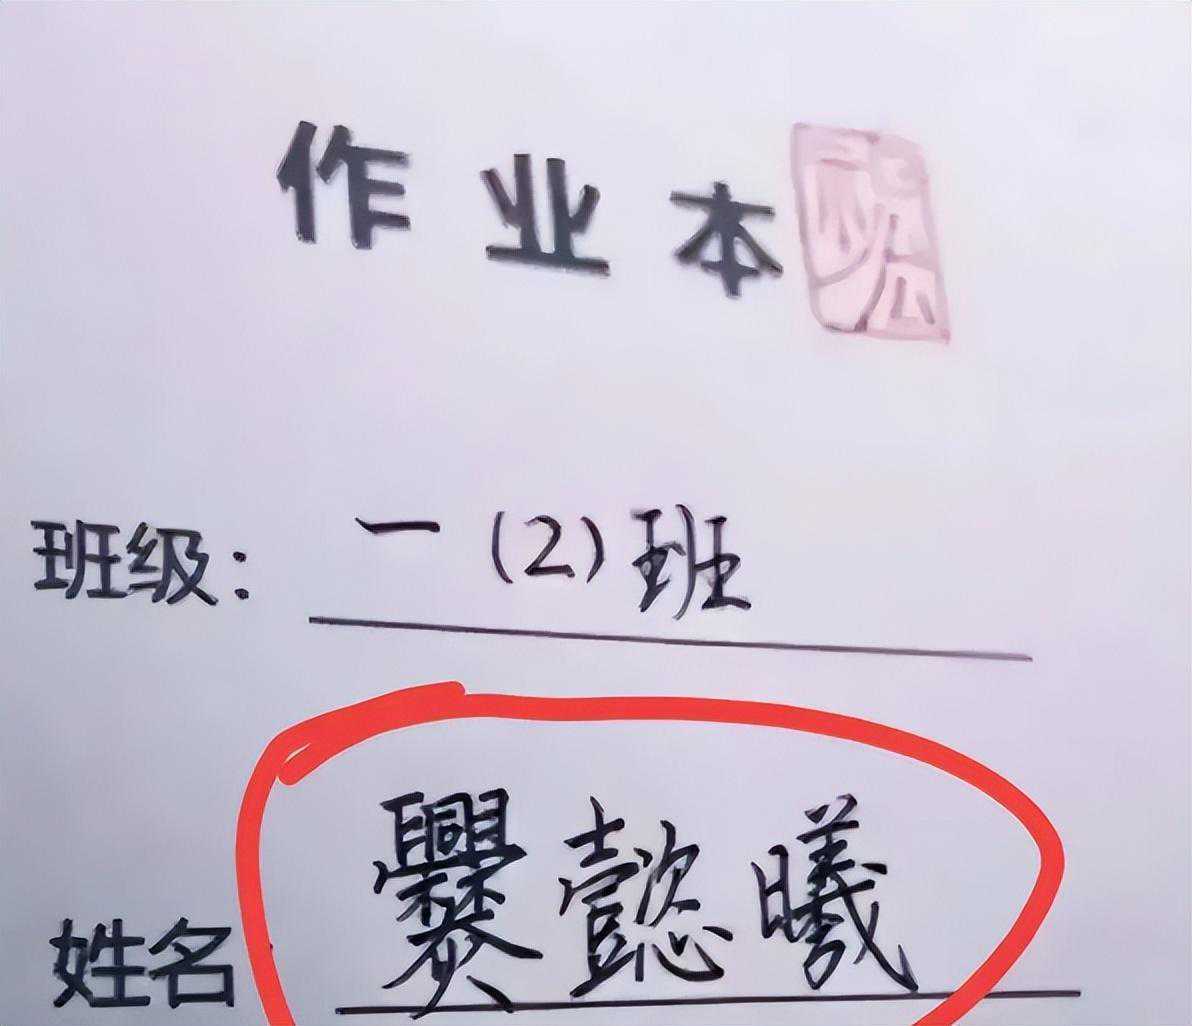 作业本
班级: 一(2)班
姓名 爨懿曦